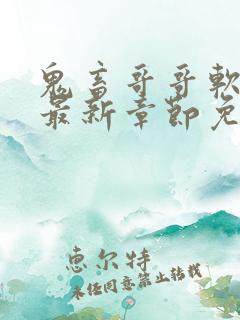 鬼畜哥哥軟
最新章節免
恵尔特
未经同意禁止转载